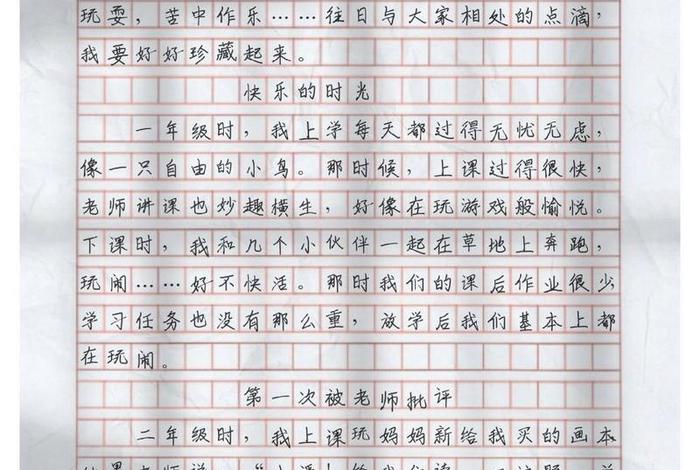 玩耍，苦中作乐……往日与大家相处的点滴，
我要好好珍藏起来。
快乐的时光
一年级时，我上学每天都过得无忧无虑，
像一只自由的小鸟。那时候，上课过得很快，
老师讲课也妙趣横生，好像在玩游戏般愉悦。
下课时，我和几个小伙伴一起在草地上奔跑，
玩闹……好不快活。那时我们的课后作业很少
学习任务也没有那么重，放学后我们基本上都
在玩闹。
第一次被老师批评
二年级时，我上课玩妈妈新给我买的画本